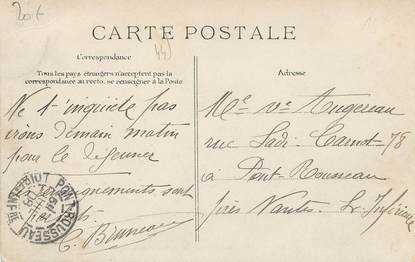 20f
44)
CARTE POSTALE
Correspondance
Tous les pays étrangers n'acceptent pas la
correspondance au recto, se renseigner à la Poste
Ne t'inquiète pas
irons demain matin
pour le déjeuner
sont
Adresse
Me Ve Augereau
rue Sadi-Carnot-78
à Pont-Rousseau
près Nantes Lre Inférieure
PONT-ROUSSEAU
LOIRE INFRE